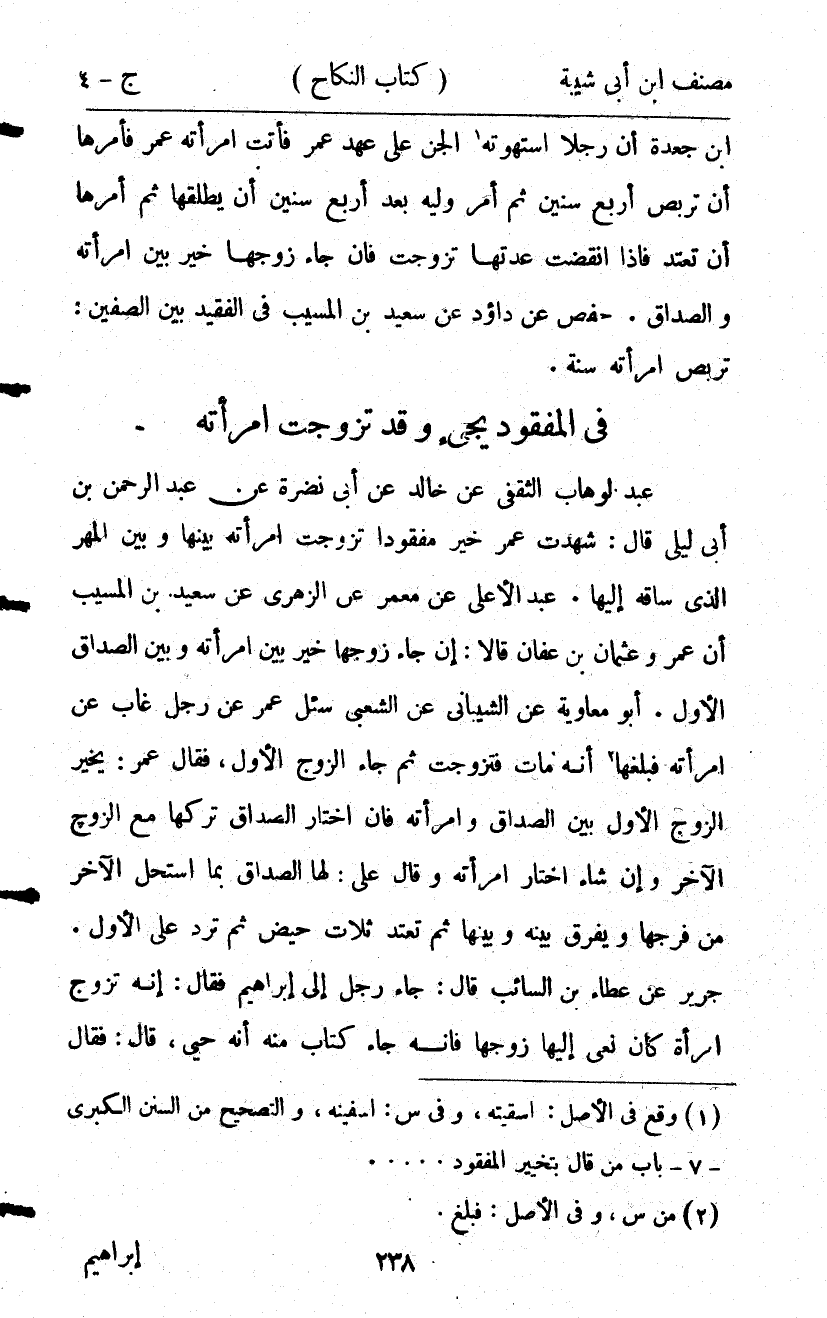 مصنف ابن أبى شيبة ( كتاب النكاح ) ج - ٤
ابن جعدة أن رجلا استهوته١ الجن على عهد عمر فأتت امرأته عمر فأمرها
أن تربص أربع سنين ثم أمر وليه بعد أربع سنين أن يطلقها ثم أمرها
أن تعتد فاذا انقضت عدتها تزوجت فان جاء زوجها خير بين امرأته
و الصداق . حفص عن داؤد عن سعيد بن المسيب فى الفقيد بين الصفين :
تربص امرأته سنة .
فى المفقود يجىء و قد تزوجت امرأته -
عبد الوهاب الثقفى عن خالد عن أبى نضرة عن عبد الرحمن بن
أبى ليلى قال : شهدت عمر خير مفقودا تزوجت امرأته بينها و بين المهر
الذى ساقه إليها . عبد الأعلى عن معمر عن الزهرى عن سعيد بن المسيب
أن عمر و عثمان بن عفان قالا : إن جاء زوجها خير بين امرأته و بين الصداق
الأول . أبو معاوية عن الشيبانى عن الشعبى سئل عمر عن رجل غاب عن
امرأته فبلغها٢ أنه مات فتزوجت ثم جاء الزوج الأول ، فقال عمر : يخير
الزوج الأول بين الصداق و امرأته فان اختار الصداق تركها مع الزوج
الآخر و إن شاء اختار امرأته و قال على : لها الصداق بما استحل الآخر
من فرجها و يفرق بينه و بينها ثم تعتد ثلاث حيض ثم ترد على الأول .
جرير عن عطاء بن السائب قال : جاء رجل إلى إبراهيم فقال : إنه تزوج
امرأة كان نعى إليها زوجها فانه جاء كتاب منه أنه حيى ، قال : فقال
(١) وقع فى الأصل : اسقيته ، و فى س : اسفينه ، و التصحيح من السنن الكبرى
- ٧ - باب من قال بتخير المفقود . . . . .
(٢) من س ، و فى الأصل : فبلغ .
٢٣٨ إبراهيم